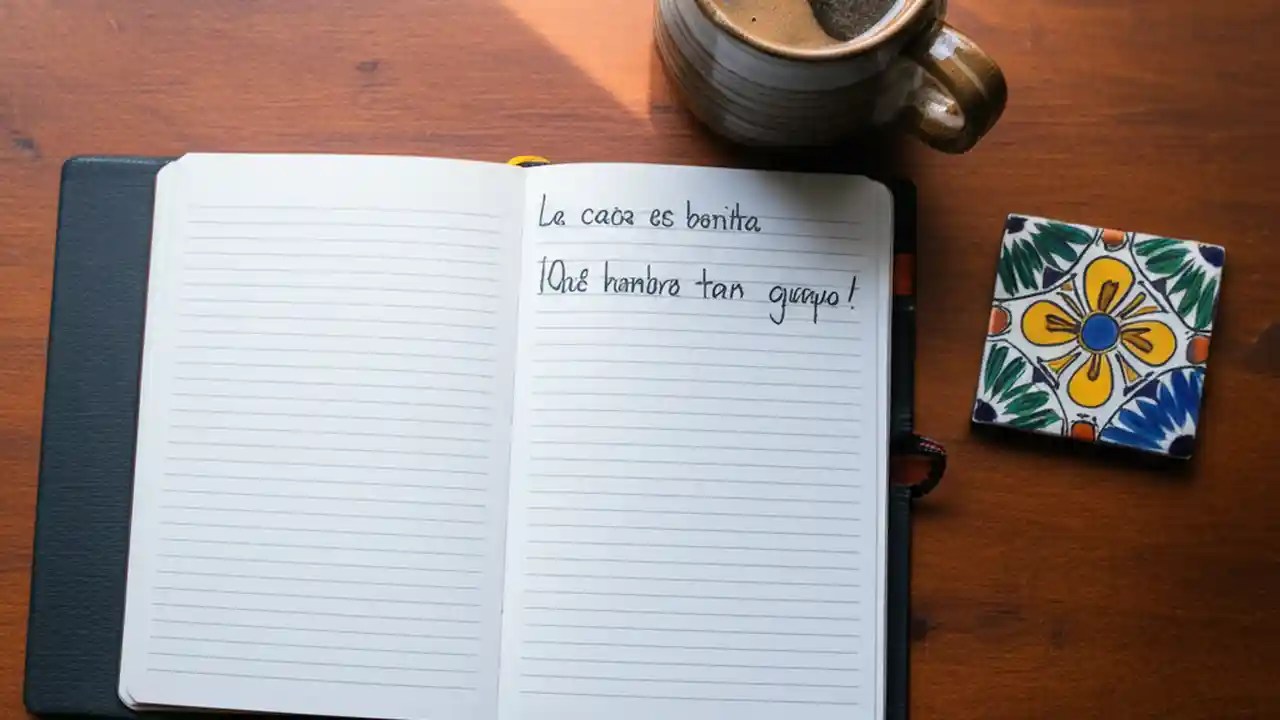 La casa es bonita
¡Qué hombre tan guapo!